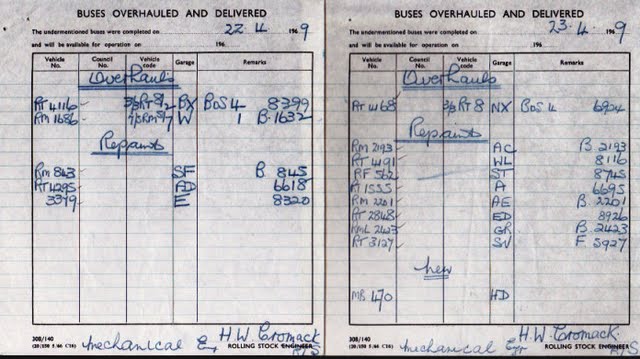 BUSES OVERHAULED AND DELIVERED
The undermentioned buses were completed on 22.4 1969
and will be available for operation on 196
Vehicle No. Council No. Vehicle code Garage Remarks
Overhauls
RT 4116 3/3RT8/2 BX BOS 4 8399
RM 1686 7/5RM9/7 W 1 B.1632
Repaints
RM 843 SF B 845
RT 4295 AD 6618
3379 E 8320
308/140
mechanical Er H.W Cromack
ROLLING STOCK ENGINEER
BUSES OVERHAULED AND DELIVERED
The undermentioned buses were completed on 23.4 1969
and will be available for operation on 196
Vehicle No. Council No. Vehicle code Garage Remarks
Overhauls
RT 4168 3/3RT8 NX BOS 4 6924
Repaints
RM 2193 AC B 2193
RT 4191 WL 8116
RF 562 ST 8745
RT 1555 A 6695
RM 2201 AE B.2201
RT 2848 ED 8926
RML 2423 GR B.2423
RT 3127 SV F 5927
new
MB 470 HD
308/140
mechanical Er H.W Cromack
ROLLING STOCK ENGINEER